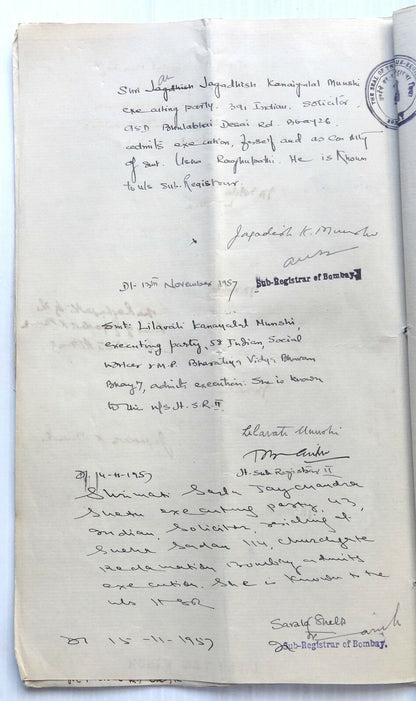 Shri Jagadhish Kanaiyalal Munshi
executing party. 39, Indian. Solicitor.
Bhulabhai Desai Rd. B'bay 26.
admits execution, for self and as Con Atty
of Smt. Usha Raghupathi. He is Known
to u/s Sub. Registrar.
Jagadish K. Munshi
Dt- 13th November 1957
Sub-Registrar of Bombay.
Smt: Lilavati Kanayalal Munshi,
executing party, 58 Indian, Social
Worker & M.P. Bharatiya Vidya Bhuvan
Bbay 7, admits execution. She is known
to the u/s Jt. S.R. II
Lilavati Munshi
Jt. Sub Registrar II
Dt 14-11-1957
Shrimati Sarla Jaychandra
Sheth executing party, 43,
Indian, Solicitor, residing at
Sneha Sadan 114, Churchgate
Reclamation Bombay admits
execution. She is Known to the
u/s Jt SR
Sarala Sheth
Dt 15-11-1957
Sub-Registrar of Bombay.